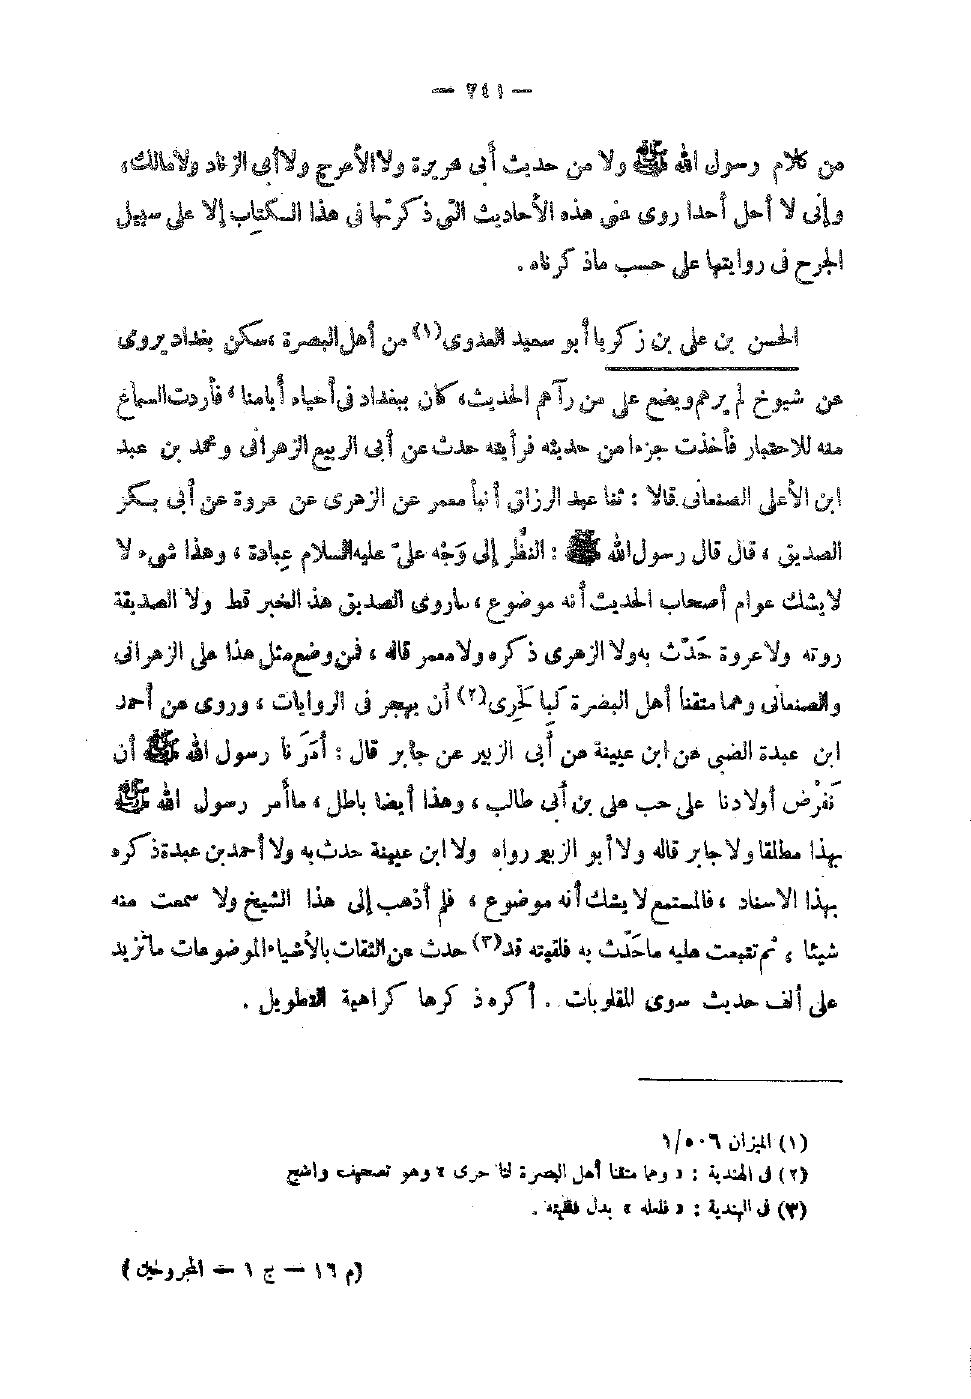 — ٢٤١ —
من كلام رسول الله ﷺ ولا من حديث أبى هريرة ولا الأعرج ولا أبى الزناد ولا مالك،
وإنى لا أحل أحدا روى عنى هذه الأحاديث التى ذكرتها فى هذا الكتاب إلا على سبيل
الجرح فى روايتها على حسب ما ذكرناه .
الحسن بن على بن زكريا أبو سعيد العدوى(١) من أهل البصرة ، سكن بغداد يروى
عن شيوخ لم يرهم ويضع على من رآهم الحديث، كان ببغداد فى أحياء أيامنا ، فأردت السماع
منه للاختبار فأخذت جزءا من حديثه فرأيته حدث عن أبى الربيع الزهرانى ومحمد بن عبد
ابن الأعلى الصنعانى قالا : ثنا عبد الرزاق أنبأ معمر عن الزهرى عن عروة عن أبى بكر
الصديق ، قال قال رسول الله ﷺ : النظر إلى وَجْه علىّ عليه السلام عِبادة ، وهذا شىء لا
لا يشك عوام أصحاب الحديث أنه موضوع ، ماروى الصديق هذ الخبر قط ولا الصديقة
روته ولا عروة حَدّث به ولا الزهرى ذكره ولا معمر قاله ، فمن وضع مثل هذا على الزهرانى
والصنعانى وهما متقنا أهل البصرة كبا لحرى(٢) أن يهجر فى الروايات ، وروى عن أحمد
ابن عبدة الضبى عن ابن عيينة عن أبى الزبير عن جابر قال : أمَرَنا رسول الله ﷺ أن
نَفْرْض أولادنا على حب على بن أبى طالب ، وهذا أيضا باطل ، ما أمر رسول الله ﷺ
بهذا مطلقا ولا جابر قاله ولا أبو الزبير رواه ولا ابن عيينة حدث به ولا أحمد بن عبدة ذكره
بهذا الاسناد ، فالمستمع لا يشك أنه موضوع ، فلم أذهب إلى هذا الشيخ ولا سمعت منه
شيئا ، ثم تتبعت عليه ما حَدّث به فلقيته قد(٣) حدث عن الثقات بالأشياء الموضوعات ما تزيد
على ألف حديث سوى المقلوبات . أكره ذكرها كراهية التطويل .
(١) الميزان ١/٥٠٦
(٢) فى الهندية : « وهما متقنا أهل البصرة لنا حرى » وهو تصحيف واضح
(٣) فى الهندية : « فلعله » بدل فلقيته .
(م ١٦ — ج ١ — المجروحين)